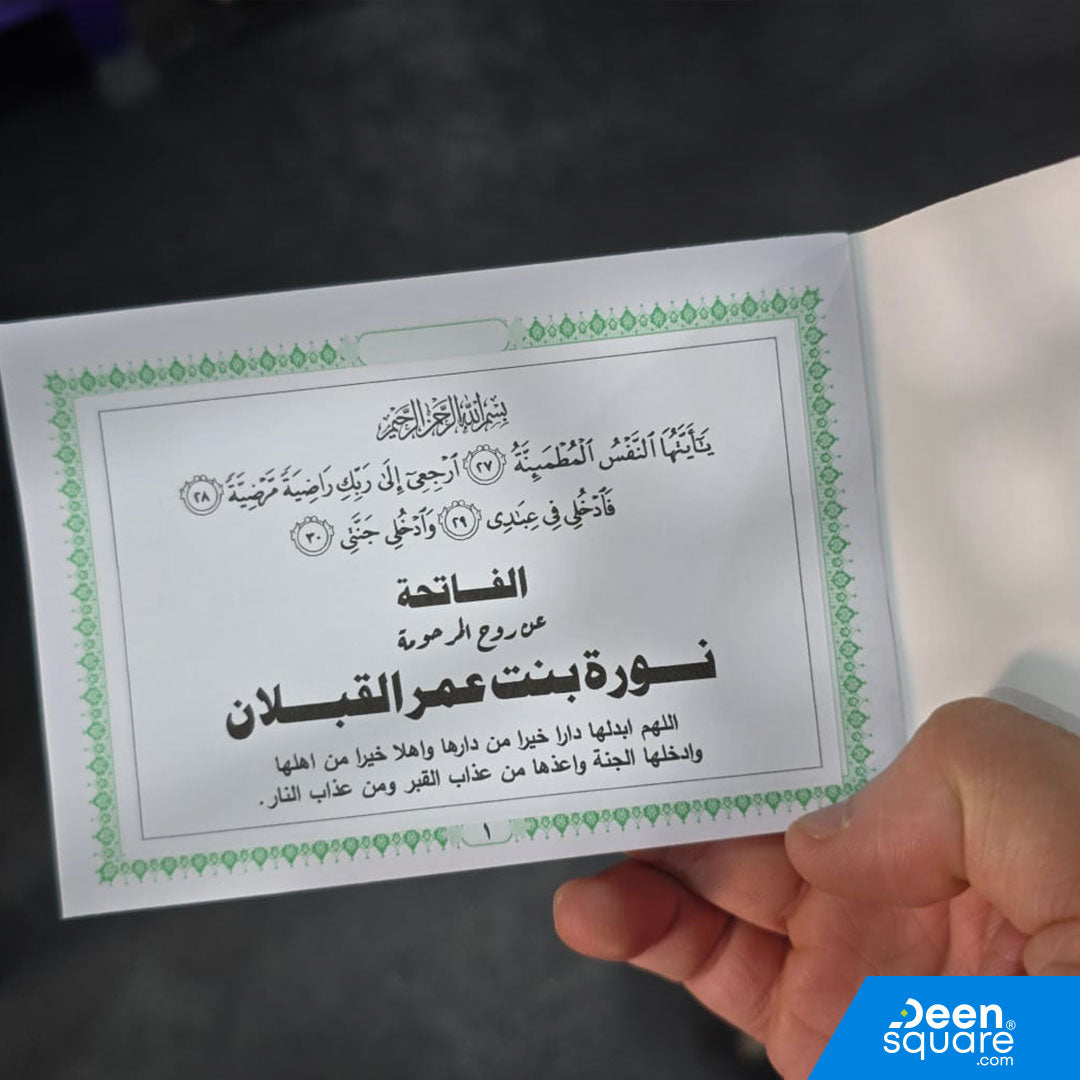 بِسْمِ اللَّهِ الرَّحْمَٰنِ الرَّحِيمِ
يَٰٓأَيَّتُهَا ٱلنَّفْسُ ٱلْمُطْمَئِنَّةُ ٢٧ ٱرْجِعِىٓ إِلَىٰ رَبِّكِ رَاضِيَةً مَّرْضِيَّةً ٢٨
فَٱدْخُلِى فِى عِبَٰدِى ٢٩ وَٱدْخُلِى جَنَّتِى ٣٠
الفـــاتحة
عن روح المرحومة
نــورة بنت عمر القبــلان
اللهم ابدلها دارا خيرا من دارها واهلا خيرا من اهلها
وادخلها الجنة واعذها من عذاب القبر ومن عذاب النار.
١
Deen®
square
.com